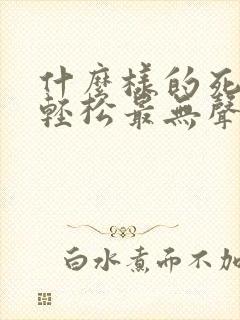 什麼樣的死
輕松最無聲
白水煮而不加